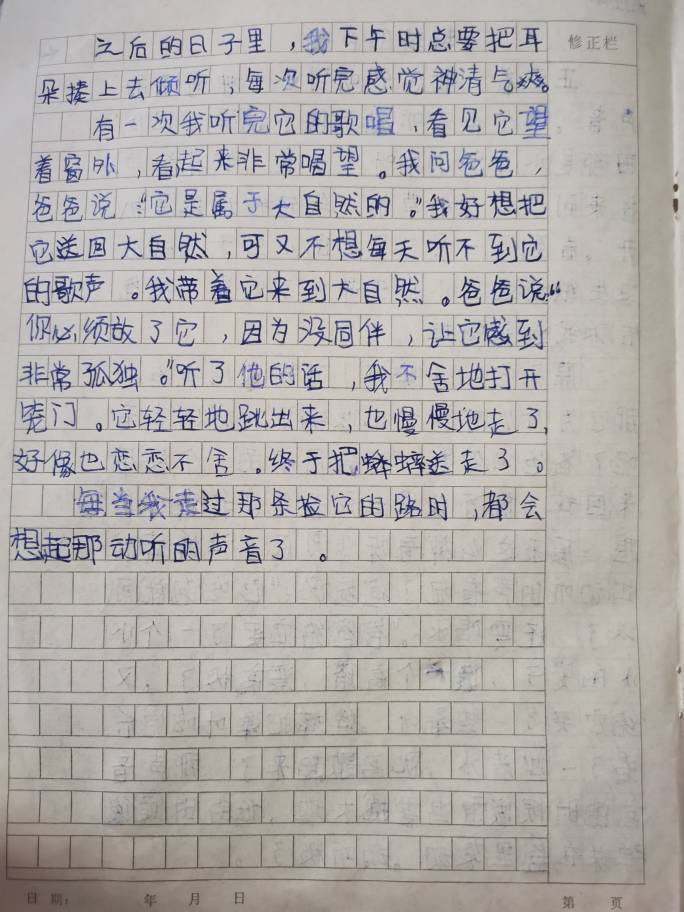 之后的日子里，我下午时总要把耳
修正栏
朵搂上去倾听，每次听完感觉神清气爽。
有一次我听完它的歌唱，看见它望
着窗外，看起来非常唱望。我问爸爸，
爸爸说：“它是属于大自然的。”我好想把
它送回大自然，可又不想每天听不到它
的歌声。我带着它来到大自然。爸爸说“
你必须放了它，因为没同伴，让它感到
非常孤独。”听了他的话，我不舍地打开
笼门。它轻轻地跳出来，也慢慢地走了，
好像也恋恋不舍。终于把蟋蟀送走了。
每当我走过那条捡它的路时，都会
想起那动听的声音了。
日期： 年 月 日
第 页